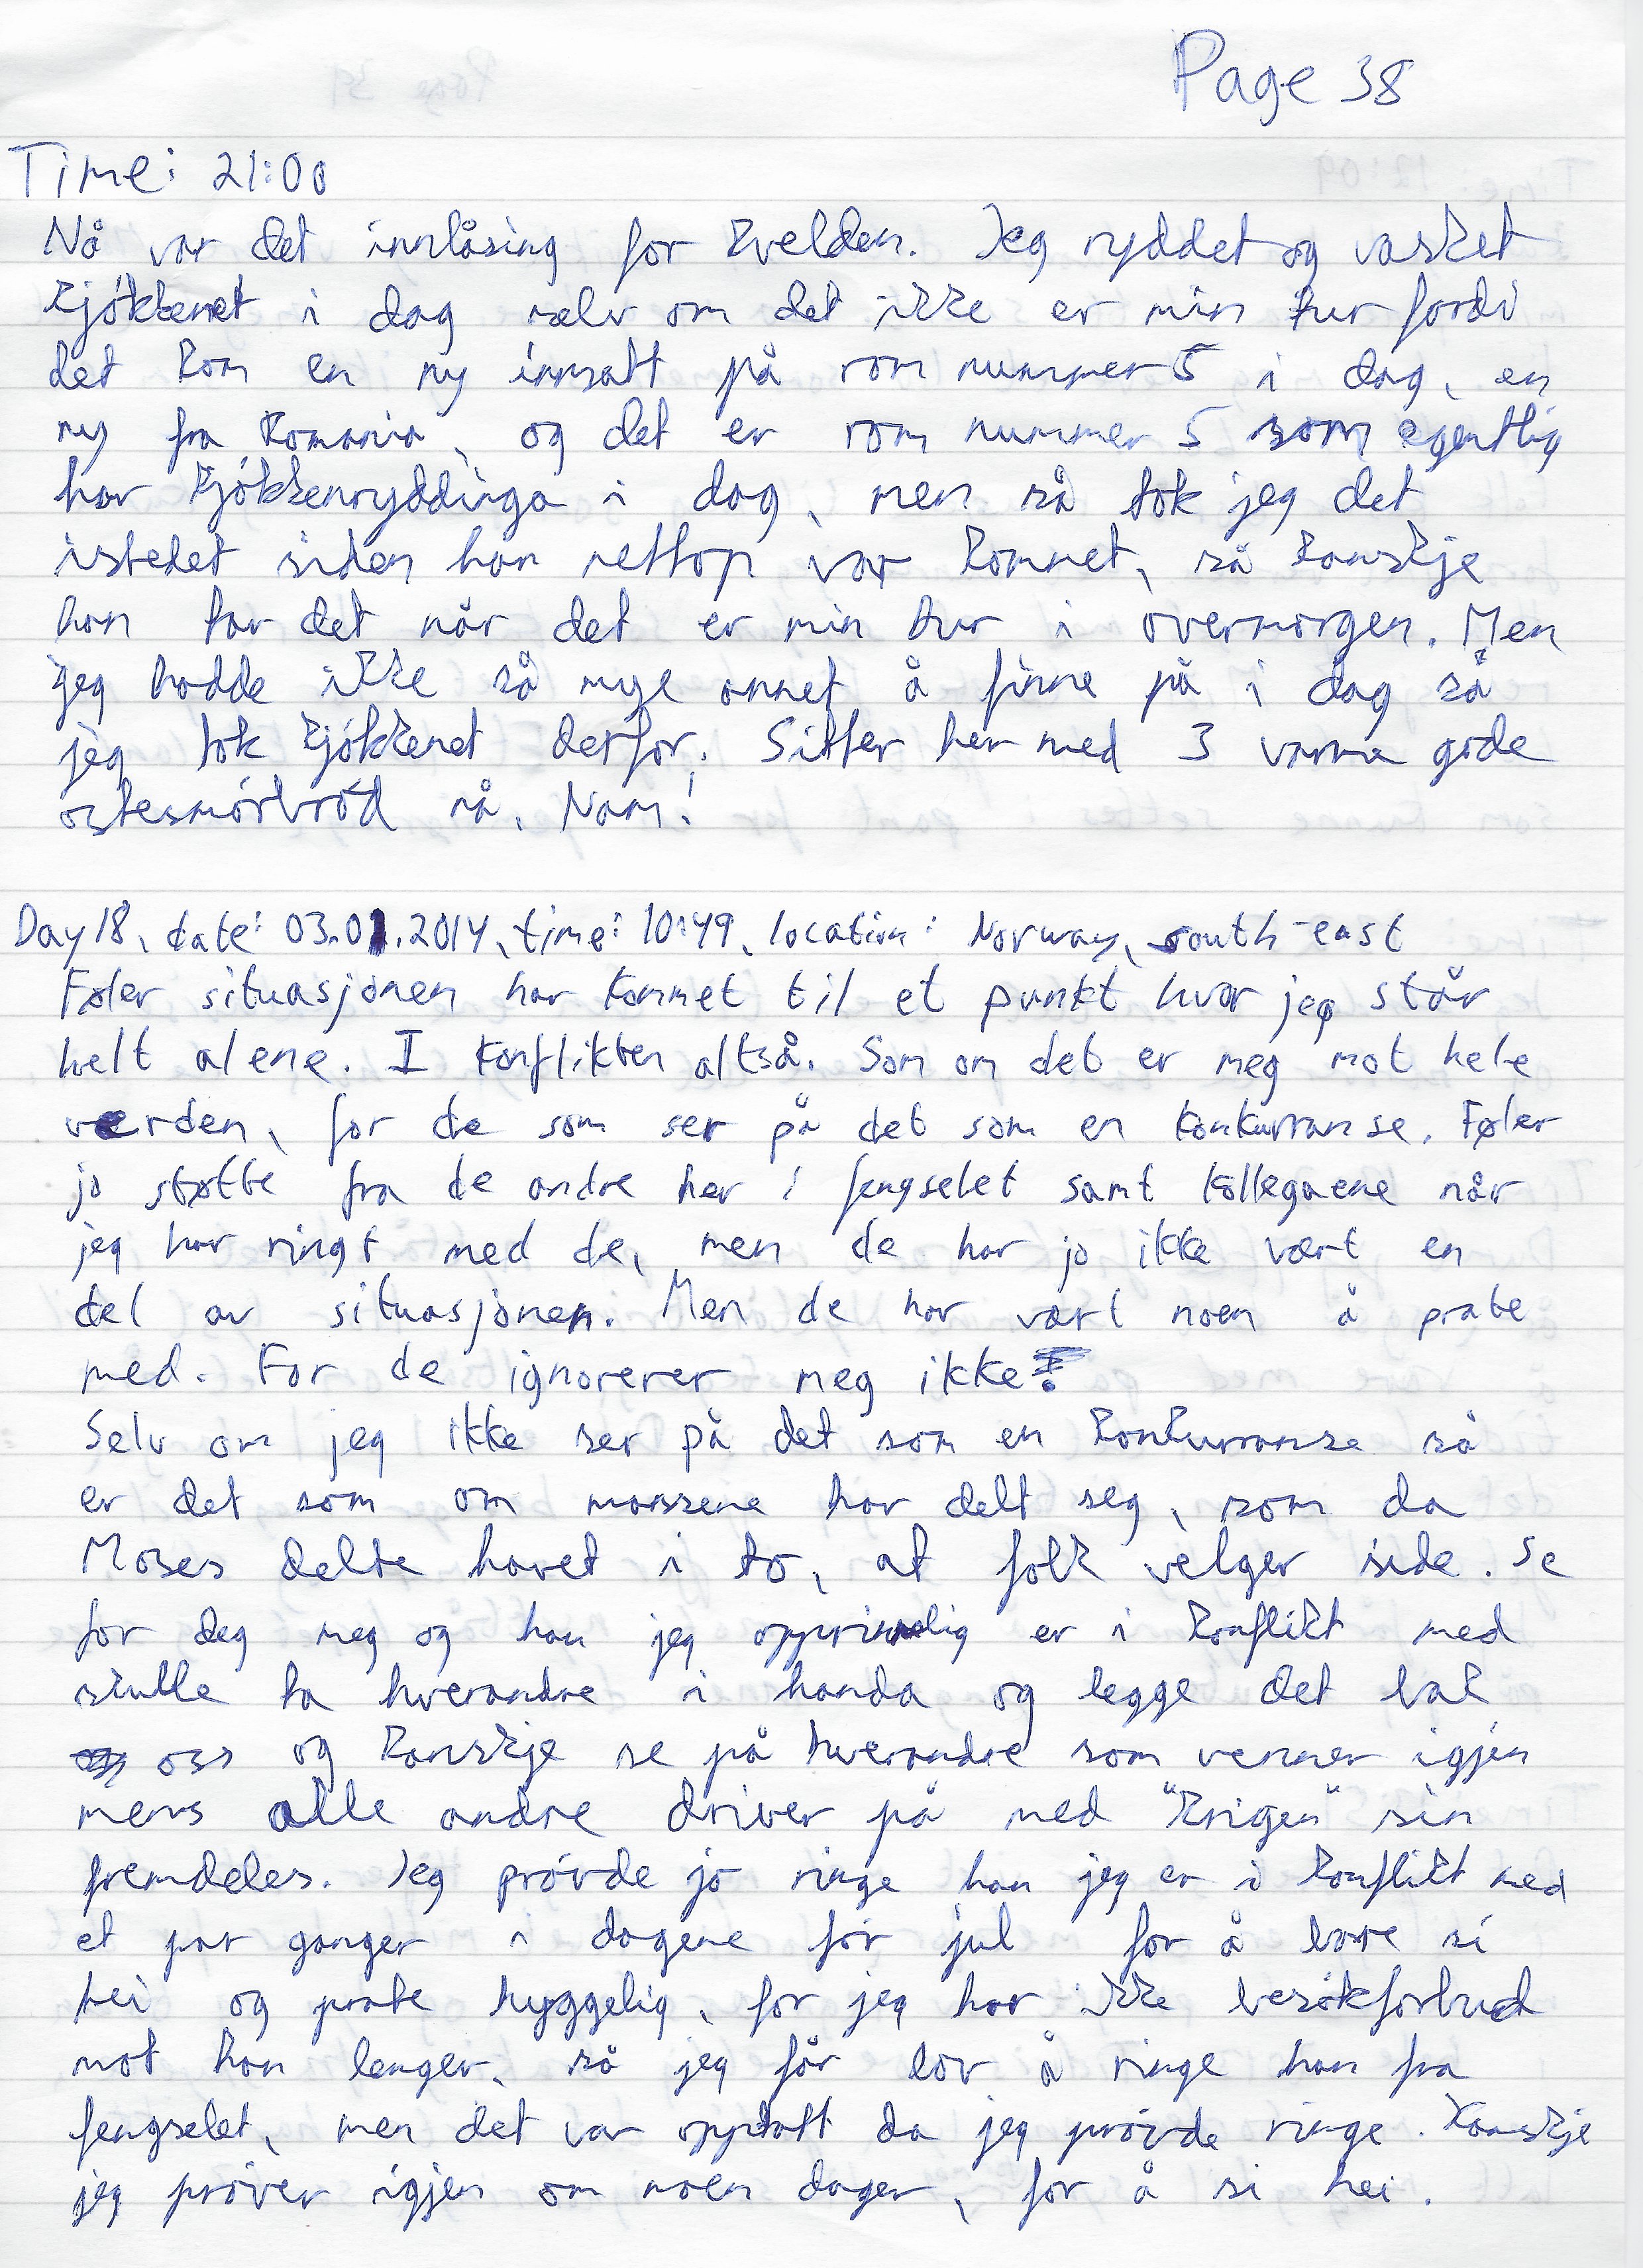 Page 38
Time: 21:00
Nå var det innlåsing for kvelden. Jeg ryddet og vasket
kjøkkenet i dag selv om det ikke er min tur fordi
det kom en ny innsatt på rom nummer 5 i dag, en
ny fra Romania, og det er rom nummer 5 som egentlig
har kjøkkenryddinga i dag, men så tok jeg det
istedet siden han nettop var kommet, så kanskje
han tar det når det er min tur i overmorgen. Men
jeg hadde ikke så mye annet å finne på i dag så
jeg tok kjøkkenet derfor. Sitter her med 3 varme gode
ostesmørbrød nå. Nam!
Day 18, date: 03.01.2014, time: 10:49, location: Norway, south-east
Føler situasjonen har kommet til et punkt hvor jeg står
helt alene. I konflikten altså. Som om det er meg mot hele
verden, for de som ser på det som en konkurranse. Føler
jo støtte fra de andre her i fengselet samt kollegaene når
jeg har ringt med de, men de har jo ikke vært en
del av situasjonen. Men de har vært noen å prate
med. For de ignorerer meg ikke!
Selv om jeg ikke ser på det som en konkurranse så
er det som om massene har delt seg, som da
Moses delte havet i to, at folk velger side. Se
for deg meg og han jeg opprinnelig er i konflikt med
skulle ta hverandre i handa og legge det bak
oss og kanskje se på hverandre som venner igjen
mens alle andre driver på med "krigen" sin
fremdeles. Jeg prøvde jo ringe han jeg er i konflikt med
et par ganger i dagene før jul for å bare si
hei og prate hyggelig, for jeg har ikke besøkforbud
mot han lenger, så jeg får lov å ringe han fra
fengselet, men det var opptatt da jeg prøvde ringe. Kanskje
jeg prøver igjen om noen dager, for å si hei.